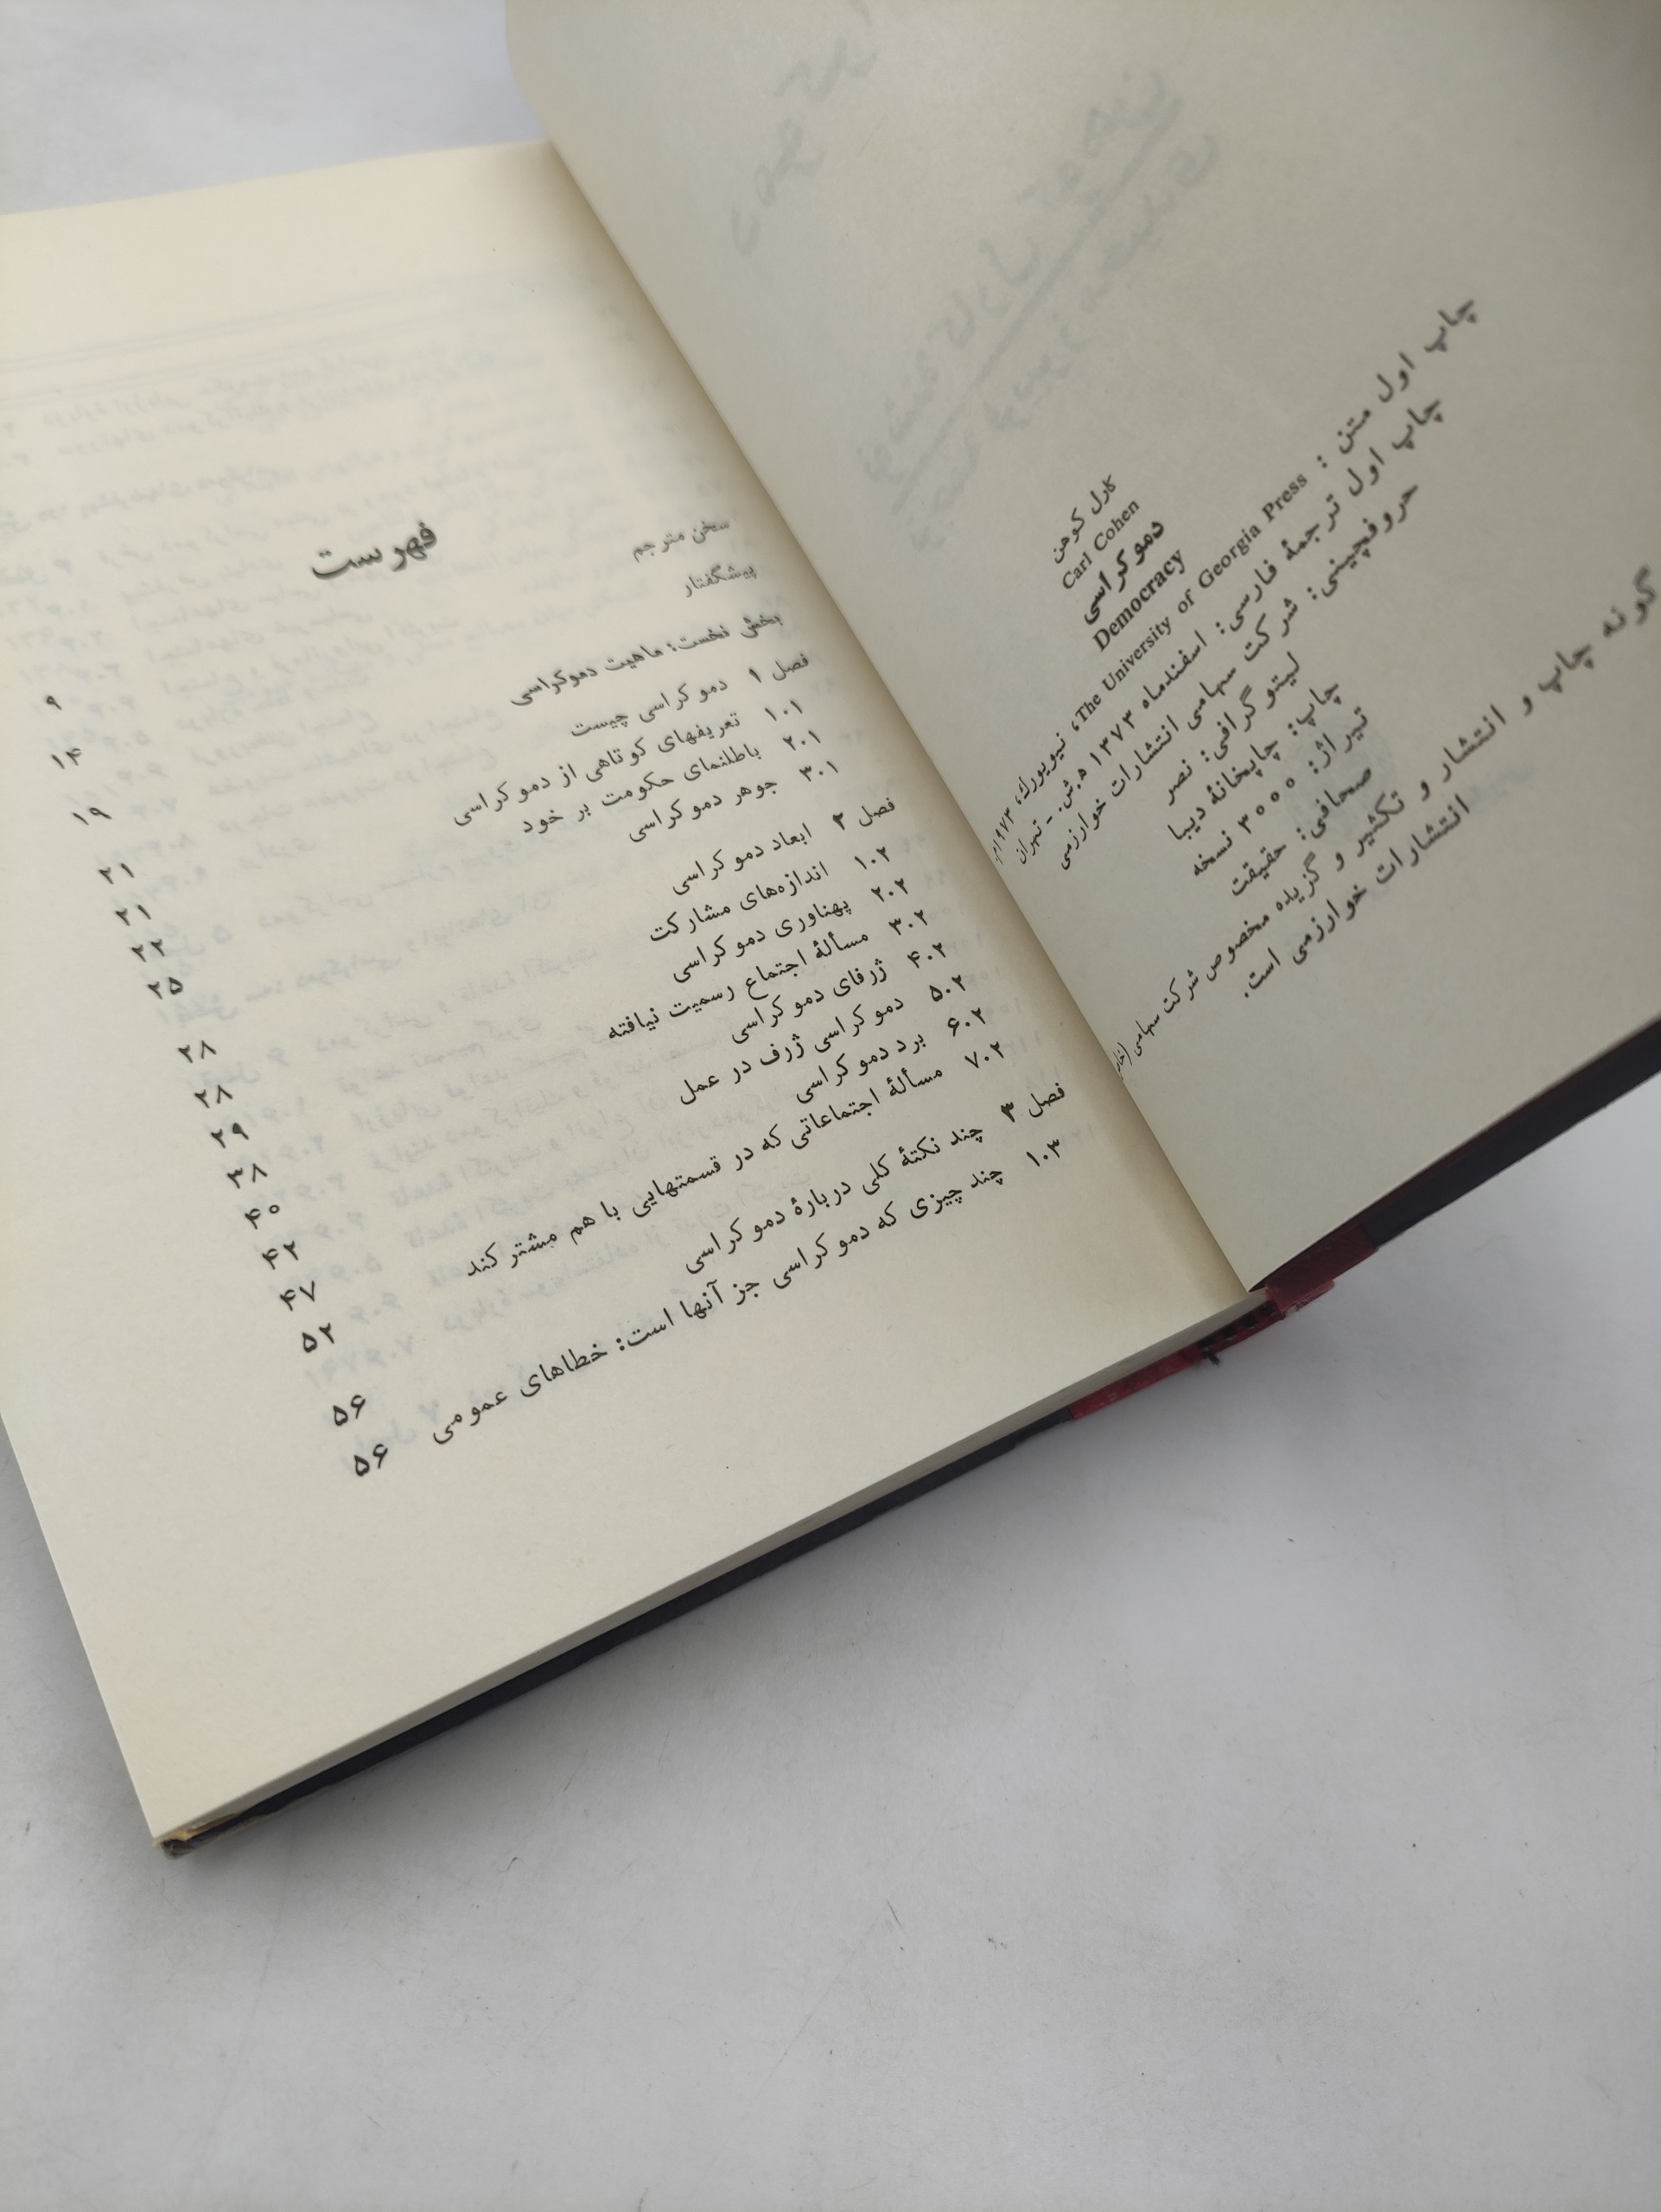 کارل کوهن
Carl Cohen
دموکراسی
Democracy
چاپ اول متن: The University of Georgia Press، نیویورک، ۱۹۷۳م.
چاپ اول ترجمهٔ فارسی: اسفندماه ۱۳۷۳ ه‍.ش. - تهران
حروفچینی: شرکت سهامی انتشارات خوارزمی
لیتوگرافی: نصر
چاپ: چاپخانهٔ دیبا
تیراژ: ۳۰۰۰ نسخه
صحافی: حقیقت
گونه چاپ و انتشار و تکثیر و گزیده مخصوص شرکت سهامی
انتشارات خوارزمی است.
فهرست
سخن مترجم ۹
پیشگفتار ۱۴
بخش نخست: ماهیت دموکراسی ۱۹
فصل ۱ دموکراسی چیست ۲۱
۱۰۱ تعریفهای کوتاهی از دموکراسی ۲۱
۲۰۱ باطلنمای حکومت بر خود ۲۲
۳۰۱ جوهر دموکراسی ۲۵
فصل ۲ ابعاد دموکراسی ۲۸
۱۰۲ اندازه‌های مشارکت ۲۸
۲۰۲ پهناوری دموکراسی ۲۹
۳۰۲ مسألهٔ اجتماع رسمیت نیافته ۳۸
۴۰۲ ژرفای دموکراسی ۴۰
۵۰۲ دموکراسی ژرف در عمل ۴۲
۶۰۲ برد دموکراسی ۴۷
۷۰۲ مسألهٔ اجتماعاتی که در قسمتهایی با هم مشترکند ۵۲
فصل ۳ چند نکتهٔ کلی دربارهٔ دموکراسی ۵۶
۱۰۳ چند چیزی که دموکراسی جز آنها است: خطاهای عمومی ۵۶